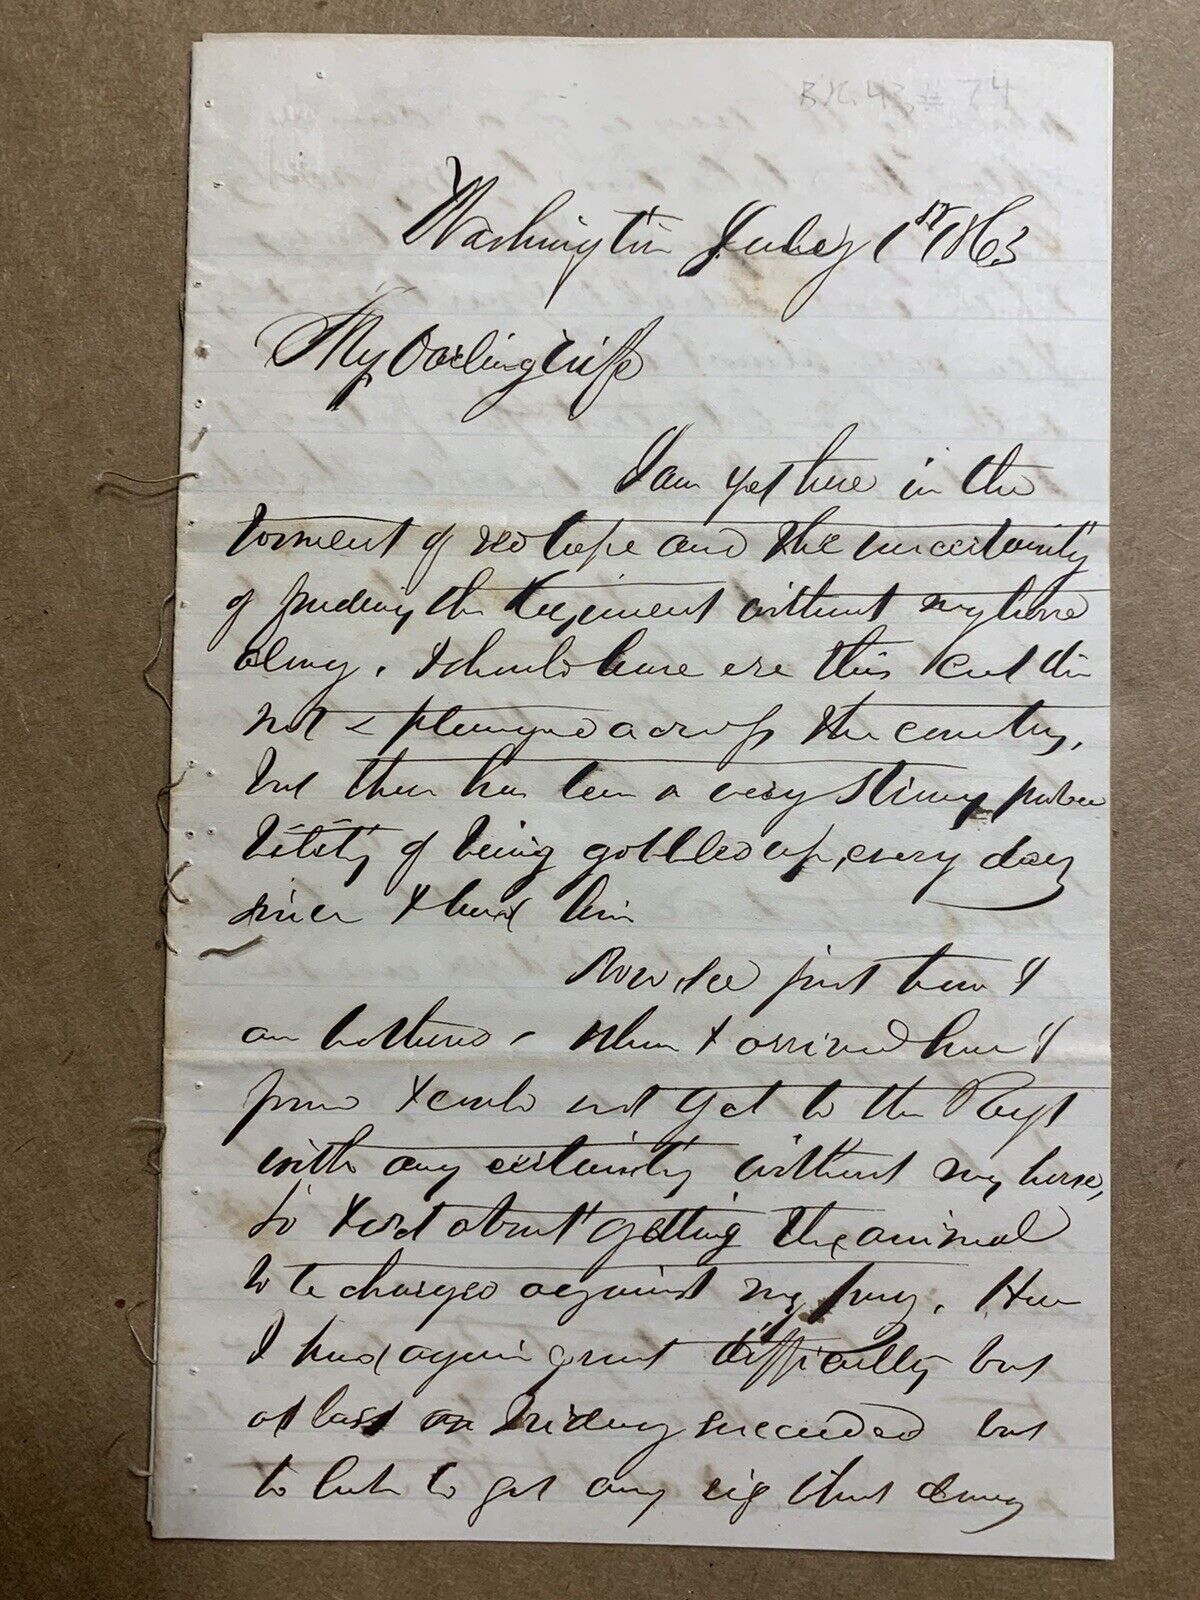 BX. 43, # 74
Washington July 1st 1863
My Darling Wife
I am yet here in the
torment of red tape and the uncertainty
of finding the Regiment without my horse
along. I should have ere this cut
not & plunged across the country,
but there has been a very strong proba
bility of being gobbled up, every day
since I have been
Now, see just how I
am bothered - When I arrived here I
found I could not get to the Regt
with any certainty without my horse,
So I set about getting the animal
to be charged against my pay. Here
I had again great difficulty but
at last on Friday succeeded but
to late to get any rig that day